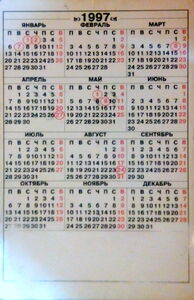 1997
ЯНВАРЬ ФЕВРАЛЬ МАРТ
П В С Ч П С В П В С Ч П С В П В С Ч П С В
1 2 3 4 5 1 2 1 2
6 7 8 9 10 11 12 3 4 5 6 7 8 9 3 4 5 6 7 8 9
13 14 15 16 17 18 19 10 11 12 13 14 15 16 10 11 12 13 14 15 16
20 21 22 23 24 25 26 17 18 19 20 21 22 23 17 18 19 20 21 22 23
27 28 29 30 31 24 25 26 27 28 24 25 26 27 28 29 30
31
АПРЕЛЬ МАЙ ИЮНЬ
П В С Ч П С В П В С Ч П С В П В С Ч П С В
1 2 3 4 5 6 1 2 3 4 1
7 8 9 10 11 12 13 5 6 7 8 9 10 11 2 3 4 5 6 7 8
14 15 16 17 18 19 20 12 13 14 15 16 17 18 9 10 11 12 13 14 15
21 22 23 24 25 26 27 19 20 21 22 23 24 25 16 17 18 19 20 21 22
28 29 30 26 27 28 29 30 31 23 24 25 26 27 28 29
30
ИЮЛЬ АВГУСТ СЕНТЯБРЬ
П В С Ч П С В П В С Ч П С В П В С Ч П С В
1 2 3 4 5 6 1 2 3 1 2 3 4 5 6 7
7 8 9 10 11 12 13 4 5 6 7 8 9 10 8 9 10 11 12 13 14
14 15 16 17 18 19 20 11 12 13 14 15 16 17 15 16 17 18 19 20 21
21 22 23 24 25 26 27 18 19 20 21 22 23 24 22 23 24 25 26 27 28
28 29 30 31 25 26 27 28 29 30 31 29 30
ОКТЯБРЬ НОЯБРЬ ДЕКАБРЬ
П В С Ч П С В П В С Ч П С В П В С Ч П С В
1 2 3 4 5 1 2 1 2 3 4 5 6 7
6 7 8 9 10 11 12 3 4 5 6 7 8 9 8 9 10 11 12 13 14
13 14 15 16 17 18 19 10 11 12 13 14 15 16 15 16 17 18 19 20 21
20 21 22 23 24 25 26 17 18 19 20 21 22 23 22 23 24 25 26 27 28
27 28 29 30 31 24 25 26 27 28 29 30 29 30 31